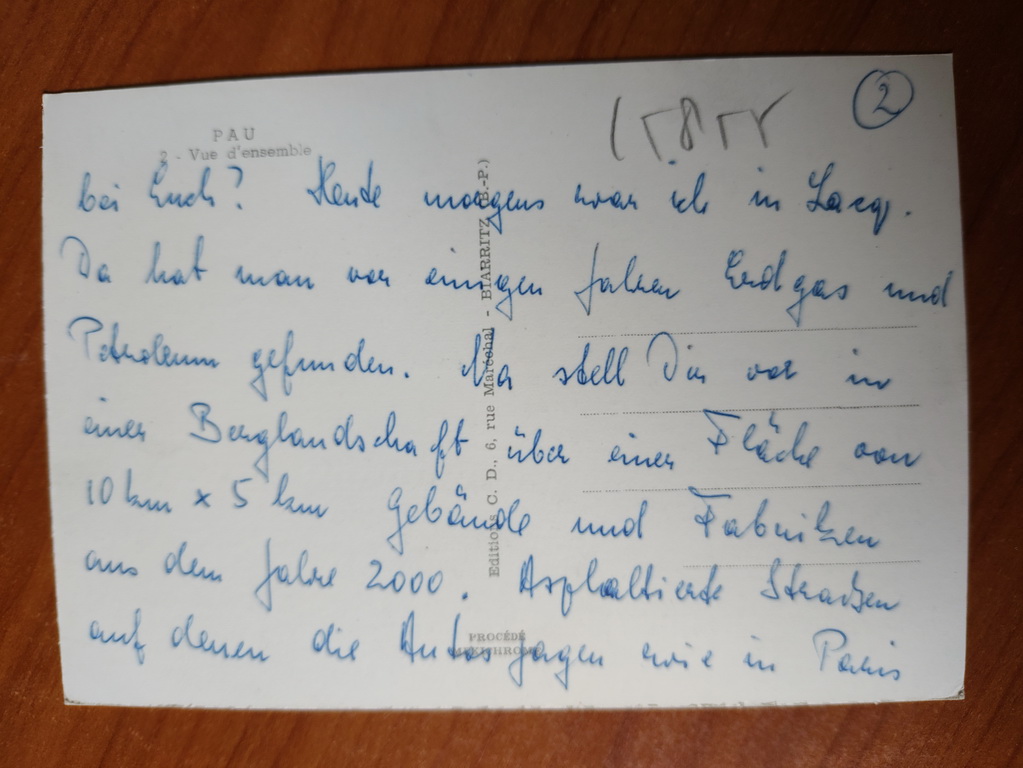 2
PAU
2 - Vue d'ensemble
bei Euch? Heute morgens war ich in Lacq.
Da hat man vor einigen Jahren Erdgas und
Petroleum gefunden. Na stell Dir vor in
einer Berglandschaft über einer Fläche von
10 km x 5 km Gebäude und Fabriken
aus dem Jahre 2000. Asphaltierte Straßen
auf denen die Autos jagen wie in Paris
Editions C. D., 6, rue Maréchal - BIARRITZ (B.-P.)
PROCÉDÉ